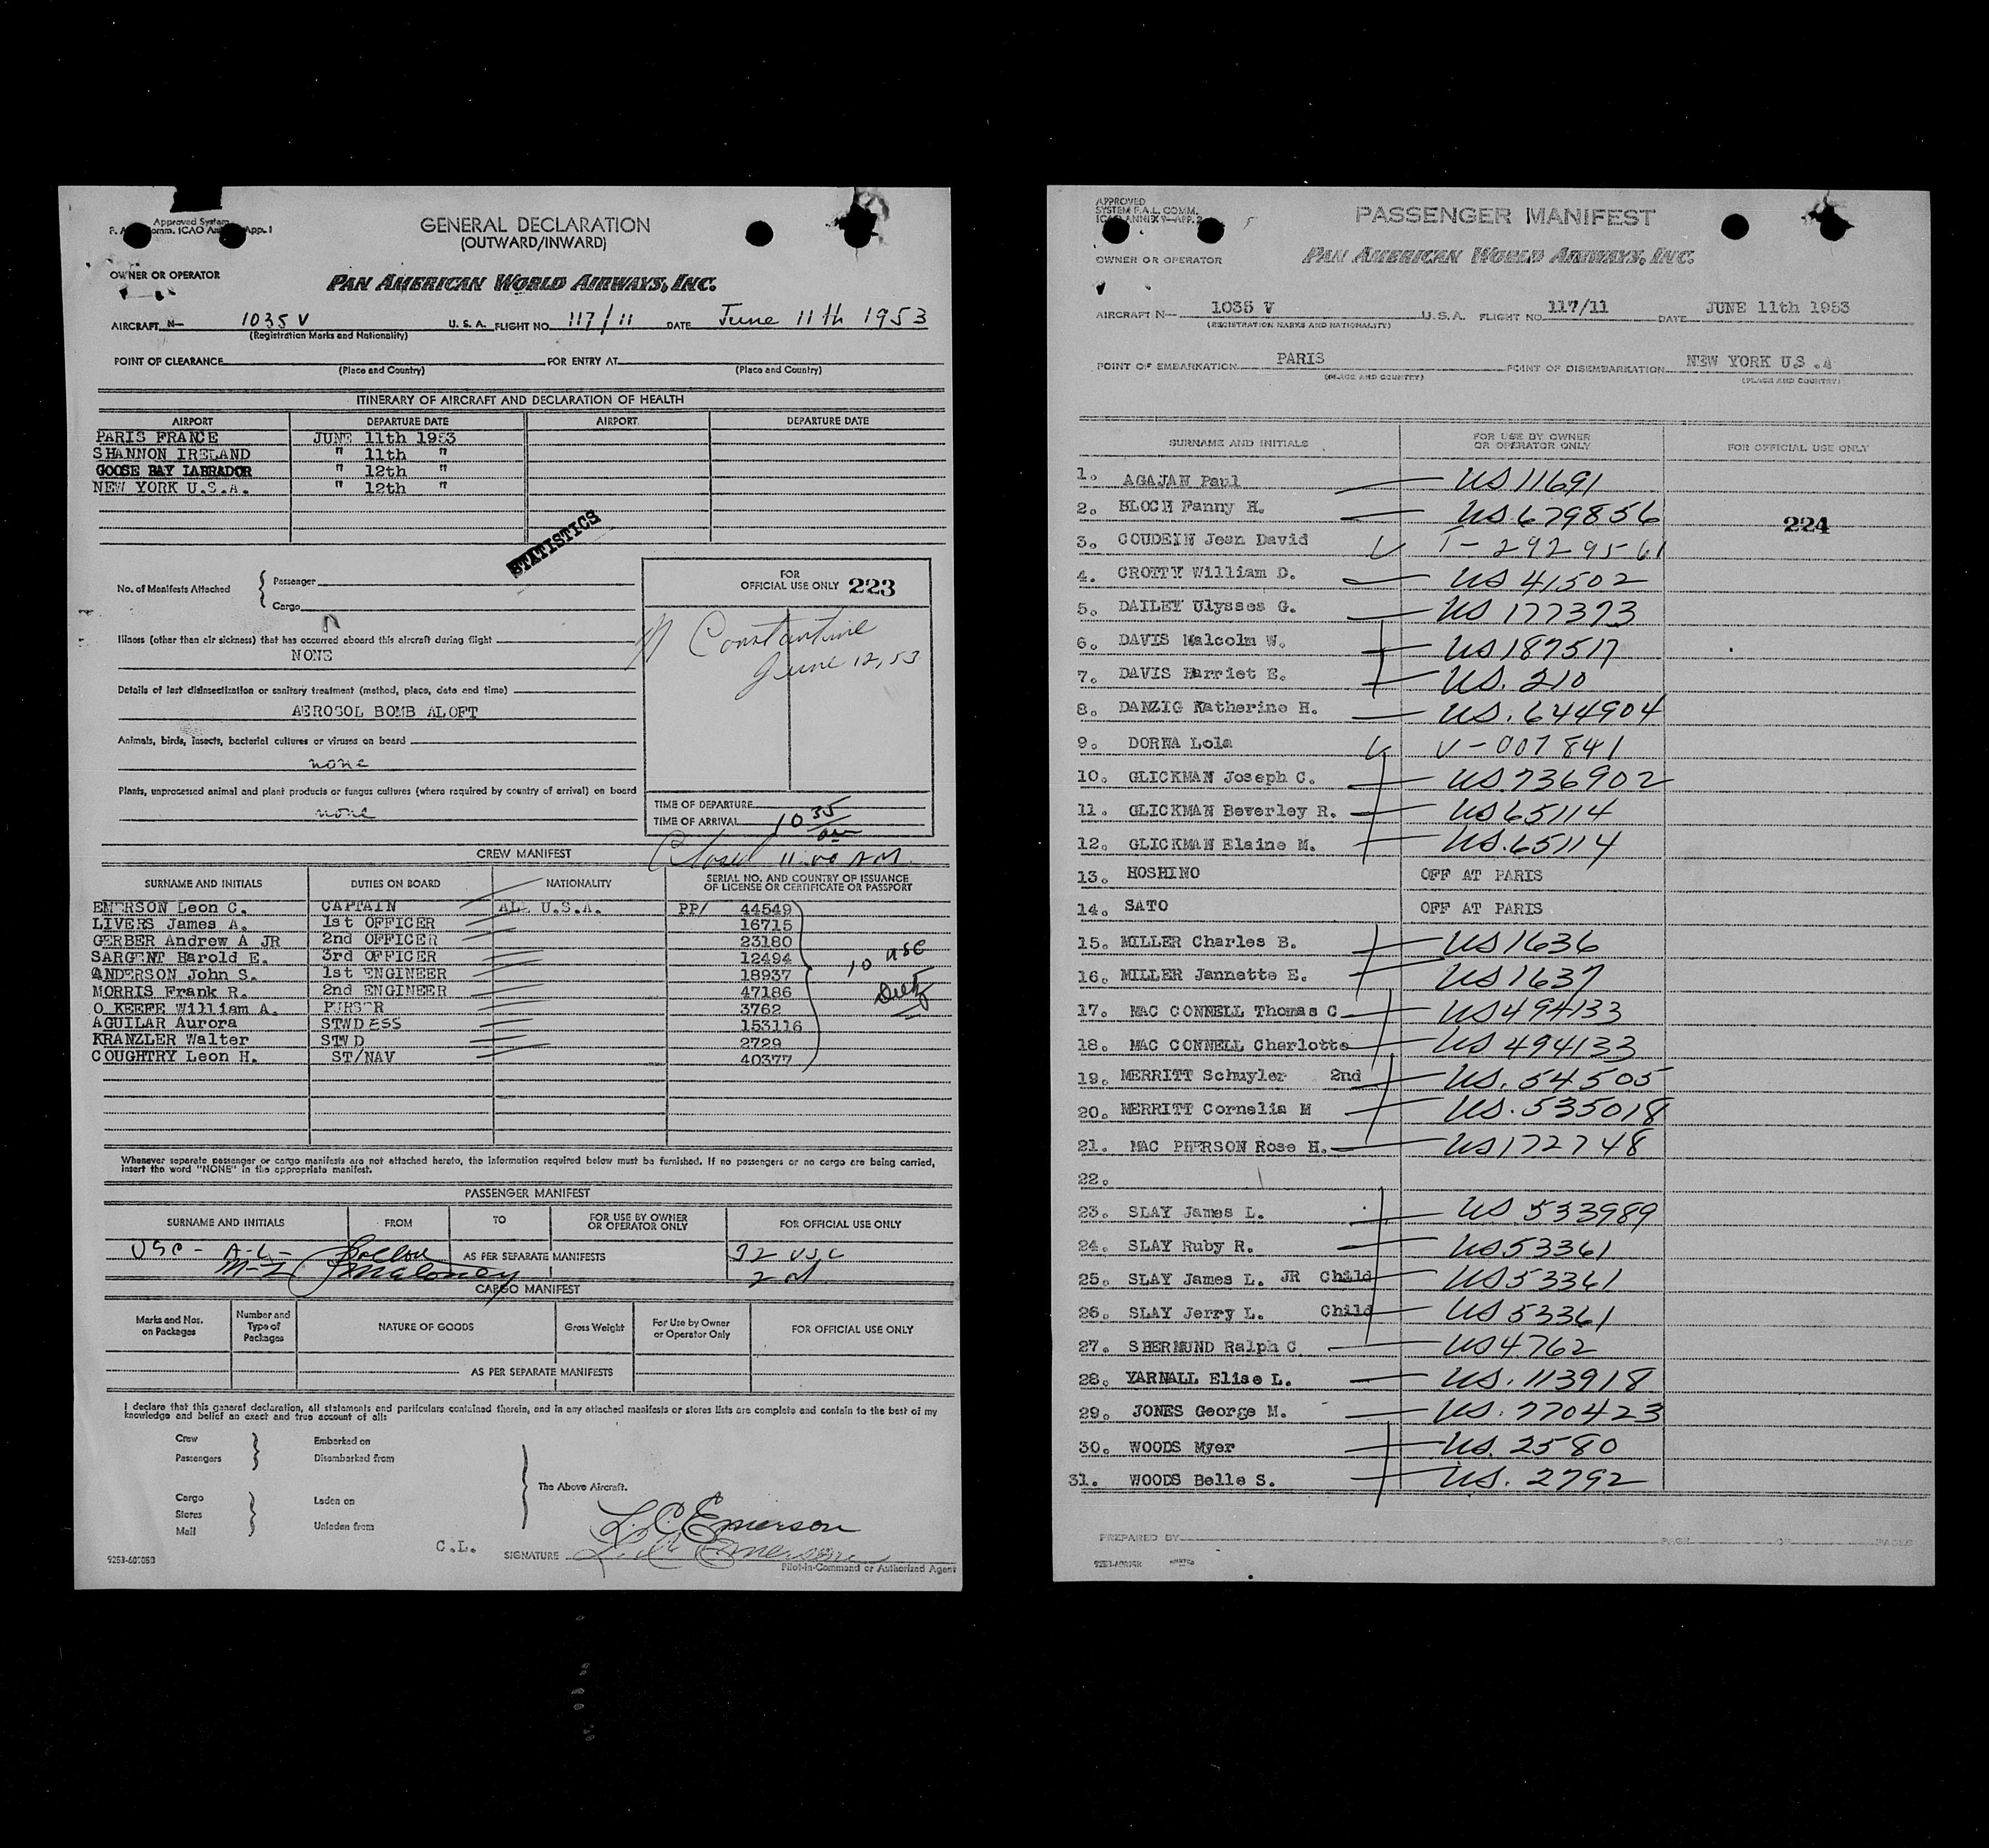 Approved System
F. A. Comm. ICAO An App. 1
GENERAL DECLARATION
(OUTWARD/INWARD)
OWNER OR OPERATOR
PAN AMERICAN WORLD AIRWAYS, INC.
AIRCRAFT N— 1035 V U. S. A. FLIGHT NO. 117/11 DATE June 11th 1953
(Registration Marks and Nationality)
POINT OF CLEARANCE FOR ENTRY AT
(Place and Country) (Place and Country)
ITINERARY OF AIRCRAFT AND DECLARATION OF HEALTH
AIRPORT DEPARTURE DATE AIRPORT DEPARTURE DATE
PARIS FRANCE JUNE 11th 1953
SHANNON IRELAND " 11th "
GOOSE BAY LABRADOR " 12th "
NEW YORK U.S.A. " 12th "
STATISTICS
No. of Manifests Attached { Passenger
Cargo
FOR
OFFICIAL USE ONLY 223
Constantine
June 12, 53
Illness (other than air sickness) that has occurred aboard this aircraft during flight
NONE
Details of last disinsectization or sanitary treatment (method, place, date and time)
AEROSOL BOMB ALOFT
Animals, birds, insects, bacterial cultures or viruses on board
none
Plants, unprocessed animal and plant products or fungus cultures (where required by country of arrival) on board
none
TIME OF DEPARTURE
TIME OF ARRIVAL 10 35 am
Closed 11 00 AM
CREW MANIFEST
SURNAME AND INITIALS DUTIES ON BOARD NATIONALITY SERIAL NO. AND COUNTRY OF ISSUANCE OF LICENSE OR CERTIFICATE OR PASSPORT
EMERSON Leon C. CAPTAIN ALL U.S.A. PP/ 44549
LIVERS James A. 1st OFFICER 16715
GERBER Andrew A JR 2nd OFFICER 23180
SARGENT Harold E. 3rd OFFICER 12494
ANDERSON John S. 1st ENGINEER 18937
MORRIS Frank R. 2nd ENGINEER 47186
O KEEFE William A. PURSER 3762
AGUILAR Aurora STWDESS 153116
KRANZLER Walter STWD 2729
COUGHTRY Leon H. ST/NAV 40377
10 USC
Whenever separate passenger or cargo manifests are not attached hereto, the information required below must be furnished. If no passengers or no cargo are being carried,
insert the word "NONE" in the appropriate manifest.
PASSENGER MANIFEST
SURNAME AND INITIALS FROM TO FOR USE BY OWNER OR OPERATOR ONLY FOR OFFICIAL USE ONLY
USC - A-L - AS PER SEPARATE MANIFESTS 32 USC
M-Z Maloney 2 al
CARGO MANIFEST
Marks and Nos. on Packages Number and Type of Packages NATURE OF GOODS Gross Weight For Use by Owner or Operator Only FOR OFFICIAL USE ONLY
AS PER SEPARATE MANIFESTS
I declare that this general declaration, all statements and particulars contained therein, and in any attached manifests or stores lists are complete and contain to the best of my
knowledge and belief an exact and true account of all:
Crew Embarked on
Passengers Disembarked from
The Above Aircraft.
Cargo Laden on
Stores
Mail Unladen from
L. C. Emerson
C.L. SIGNATURE L. C. Emerson
Pilot-in-Command or Authorized Agent
APPROVED
SYSTEM F.A.L. COMM.
ICAO ANNEX 9—APP. 2
PASSENGER MANIFEST
OWNER OR OPERATOR
PAN AMERICAN WORLD AIRWAYS, INC.
AIRCRAFT N— 1035 V U.S.A. FLIGHT NO. 117/11 DATE JUNE 11th 1953
(REGISTRATION MARKS AND NATIONALITY)
POINT OF EMBARKATION PARIS POINT OF DISEMBARKATION NEW YORK U.S.A
(PLACE AND COUNTRY) (PLACE AND COUNTRY)
SURNAME AND INITIALS FOR USE BY OWNER OR OPERATOR ONLY FOR OFFICIAL USE ONLY
1. AGAJAN Paul US 11691
2. BLOCH Fanny H. US 679856
224
3. COUDEIN Jean David T- 2929561
4. CROTTY William D. US 41502
5. DAILEY Ulysses G. US 177373
6. DAVIS Malcolm W. US 187517
7. DAVIS Harriet E. US. 210
8. DANZIG Katherine H. US. 644904
9. DORNA Lola V-007841
10. GLICKMAN Joseph C. US 736902
11. GLICKMAN Beverley R. US 65114
12. GLICKMAN Elaine M. US. 65114
13. HOSHINO OFF AT PARIS
14. SATO OFF AT PARIS
15. MILLER Charles B. US 1636
16. MILLER Jannette E. US 1637
17. MAC CONNELL Thomas C US 494133
18. MAC CONNELL Charlotte US 494133
19. MERRITT Schuyler 2nd US. 54505
20. MERRITT Cornelia M US. 535018
21. MAC PHERSON Rose H. US 172748
22.
23. SLAY James L. US 533989
24. SLAY Ruby R. US 53361
25. SLAY James L. JR Child US 53361
26. SLAY Jerry L. Child US 53361
27. SHERMUND Ralph C US 4762
28. YARNALL Elise L. US. 113918
29. JONES George M. US. 770423
30. WOODS Myer US. 2580
31. WOODS Belle S. US. 2792
PREPARED BY PAGE OF PAGES